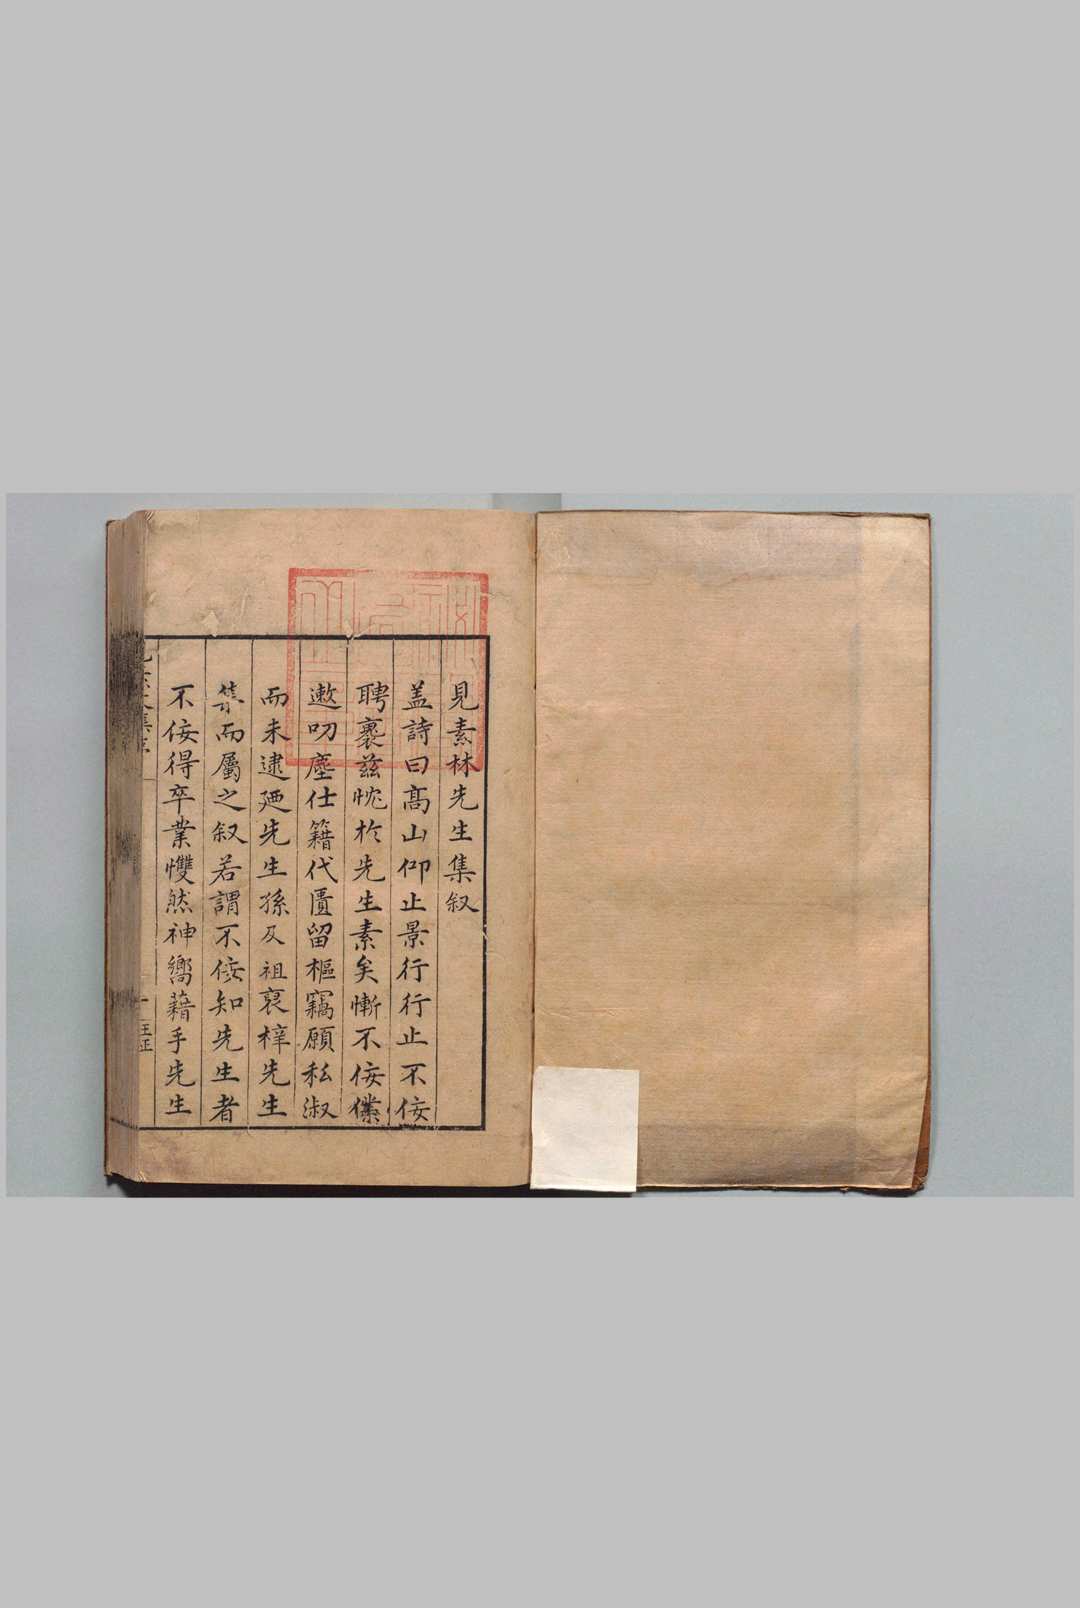 見素林先生集叙
盖詩曰髙山仰止景行行止不佞
聘裹兹忱於先生素矣慚不佞僕
遫叨塵仕籍代匱留樞竊願私淑
而未逮廼先生孫及祖裒梓先生
集而屬之叙若謂不佞知先生者
不佞得卒業戄然神嚮藉手先生
一
王正